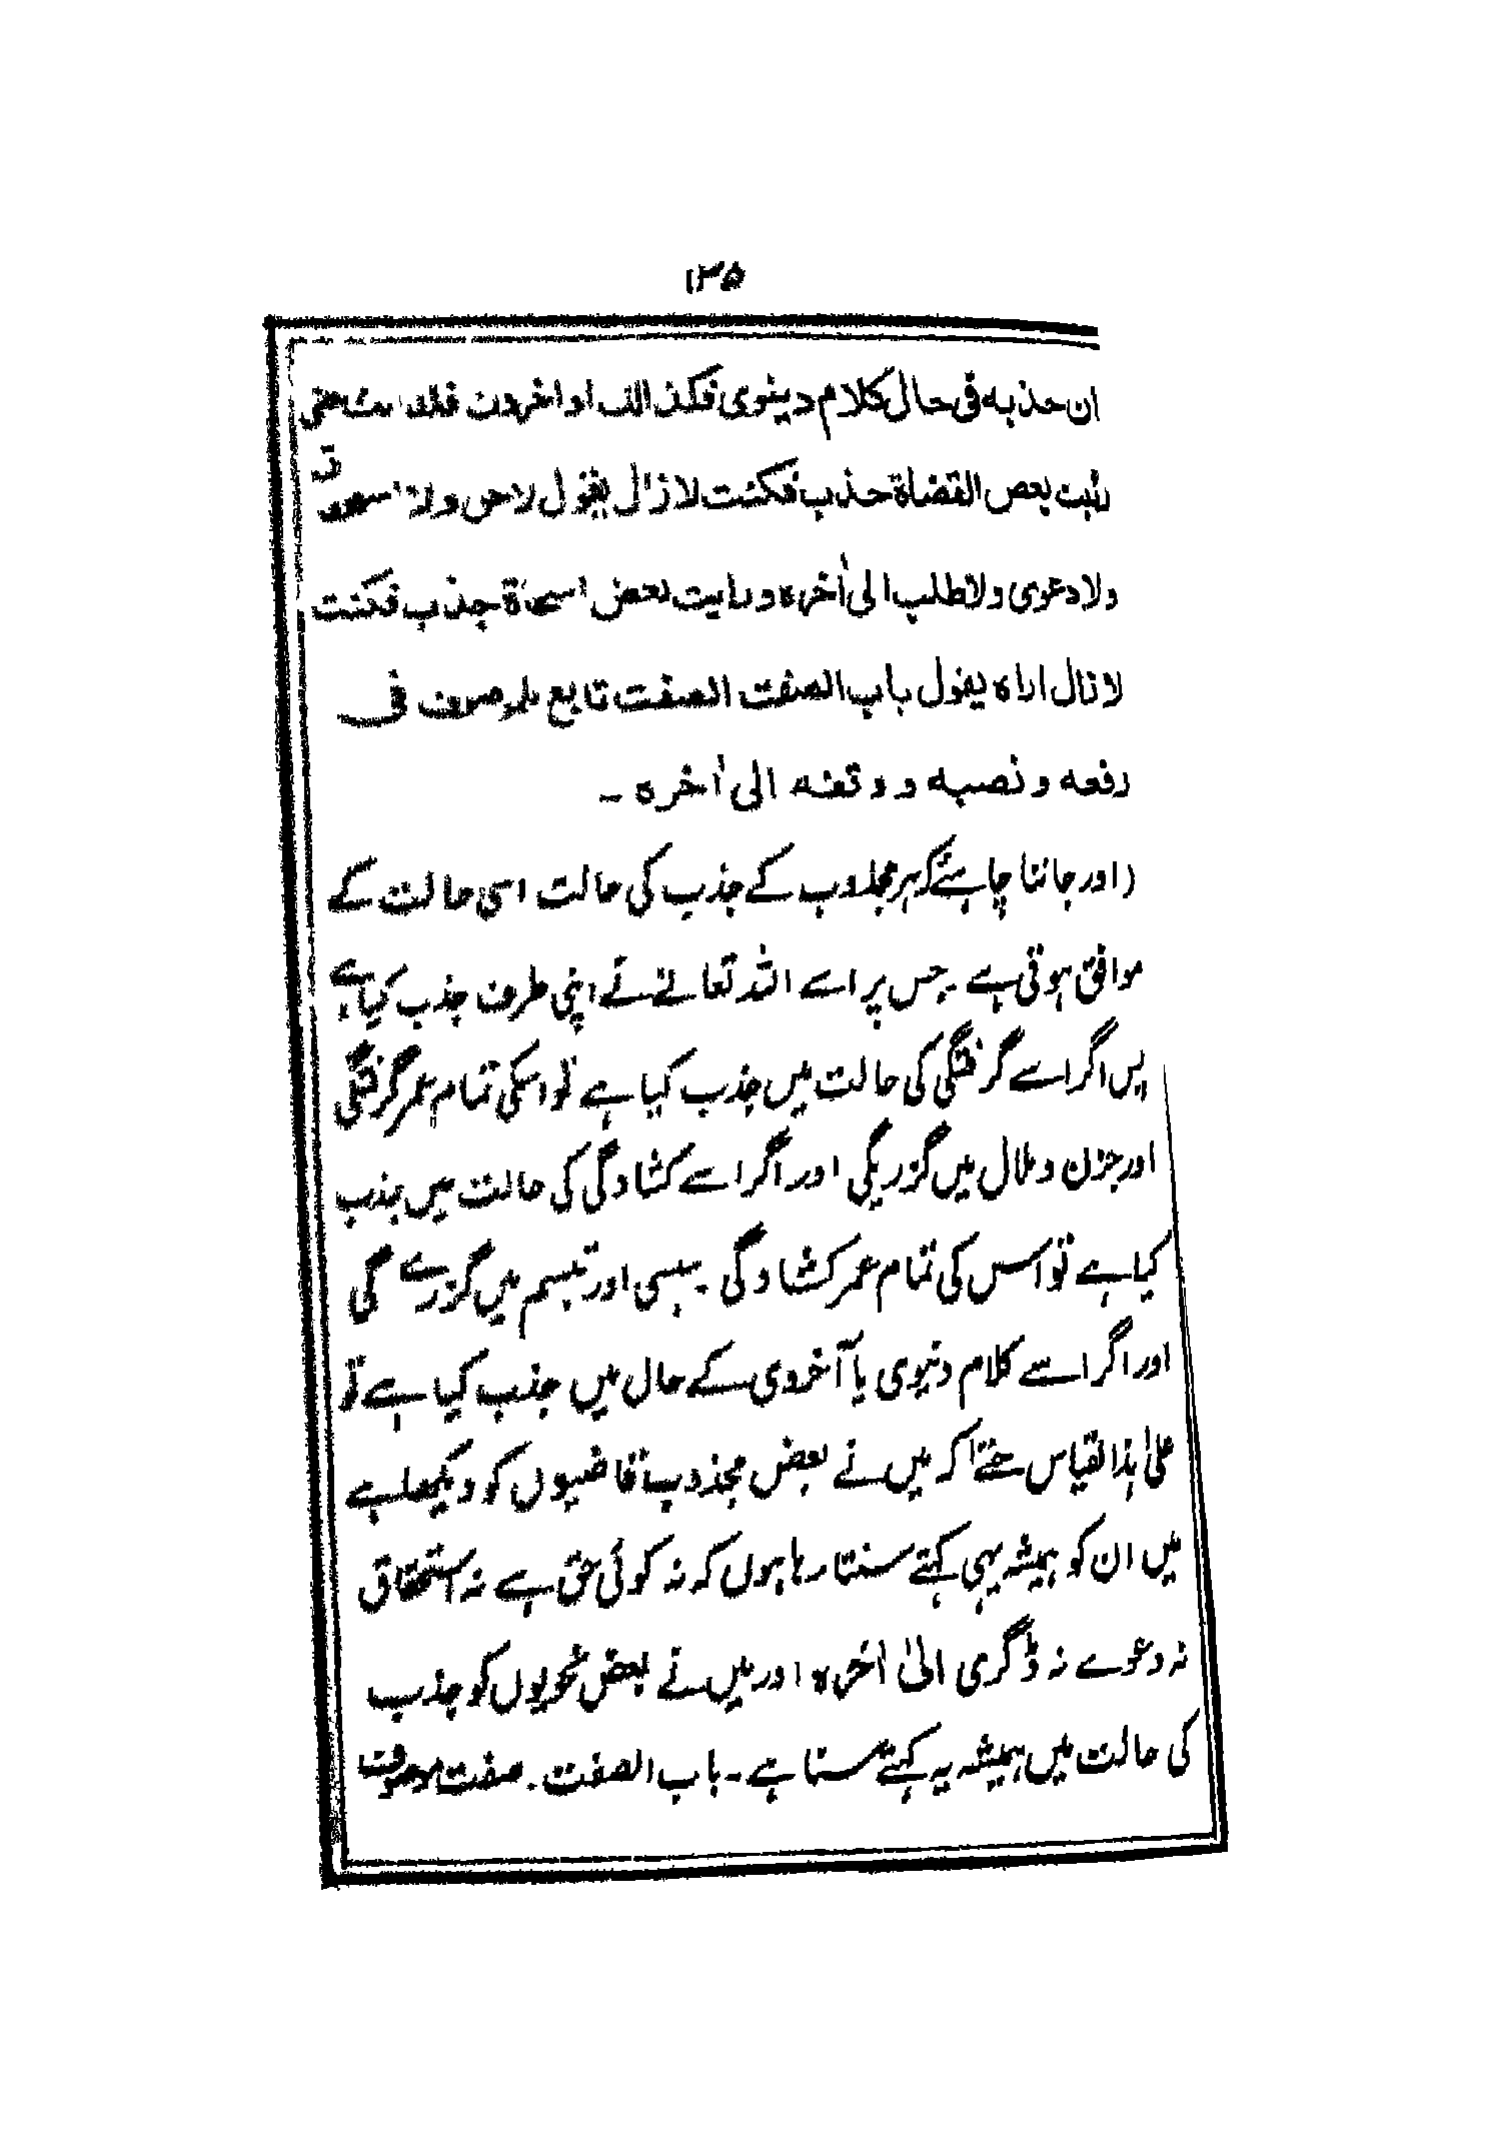 ۱۳۵
ان جذبه فی حال کلام دینوی فکذالک او اخروی
رئیت بعض القضاة جذب فکنت لازال یقول لاحق ولا استحقاق
ولا دعوی ولا طلب الی اٰخره و رایت بعض النحاة جذب فکنت
لا زال اراه یقول باب الصفت الصفت تابع للموصوف فی
رفعه و نصبه و وقفه الی اٰخره ۔
(اور جاننا چاہئے کہ ہر مجذوب کے جذب کی حالت اسی حالت کے
موافق ہوتی ہے ۔ جس پر اسے اللہ تعالےٰ نے اپنی طرف جذب کیا ہے
پس اگر اسے گرفتگی کی حالت میں جذب کیا ہے تو اسکی تمام عمر گرفتگی
اور حزن و ملال میں گزریگی اور اگر اسے کشادگی کی حالت میں جذب
کیا ہے تو اس کی تمام عمر کشادگی ۔ ہنسی اور تبسم میں گزرے گی
اور اگر اسے کلام دنیوی یا آخروی کے حال میں جذب کیا ہے تو
علیٰ ہذا القیاس حتےٰ کہ میں نے بعض مجذوب قاضیوں کو دیکھا ہے
میں ان کو ہمیشہ یہی کہتے سنتا رہا ہوں کہ نہ کوئی حق ہے نہ استحقاق
نہ دعوے نہ ڈگری الیٰ اٰخرہ اور میں نے بعض نحویوں کو جذب
کی حالت میں ہمیشہ یہ کہتے سنا ہے ۔ باب الصفت ۔ صفت موصوف